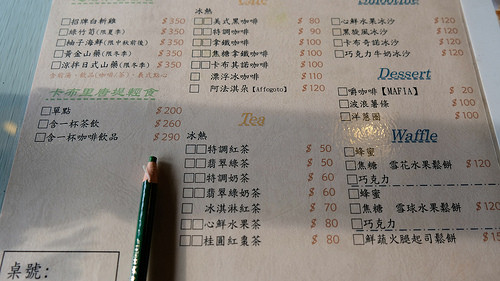 □招牌白斬雞 $350
□綠竹筍(限夏季) $350
□柚子海鮮(限中秋前後) $350
□黃金山藥(限冬季) $350
□涼拌日式山藥(限冬季) $350
卡布里喬提輕食
□單點 $200
□含一杯茶飲 $260
□含一杯咖啡飲品 $290
桌號:
冰熱
□□美式黑咖啡 $ 80
□□特調咖啡 $ 90
□□拿鐵咖啡 $100
□□焦糖拿鐵咖啡 $100
□□卡布其諾咖啡 $100
□ 漂浮冰咖啡 $110
□ 阿法淇朵【Affogoto】 $120
Tea
冰熱
□□特調紅茶 $ 50
□□翡翠綠茶 $ 50
□□特調奶茶 $ 60
□□翡翠綠奶茶 $ 60
□ 冰淇淋紅茶 $ 70
□□心鮮水果茶 $ 80
□□桂圓紅棗茶 $ 80
□心鮮水果冰沙 $120
□黑旋風冰沙 $120
□卡布奇諾冰沙 $120
□巧克力牛奶冰沙 $120
Dessert
□嚼咖啡【MAFIA】 $ 20
□波浪薯條 $100
□洋蔥圈 $100
Waffle
□蜂蜜
□焦糖 雪花水果鬆餅 $120
□巧克力
□蜂蜜
□焦糖 雪球水果鬆餅 $120
□巧克力
□鮮蔬火腿起司鬆餅